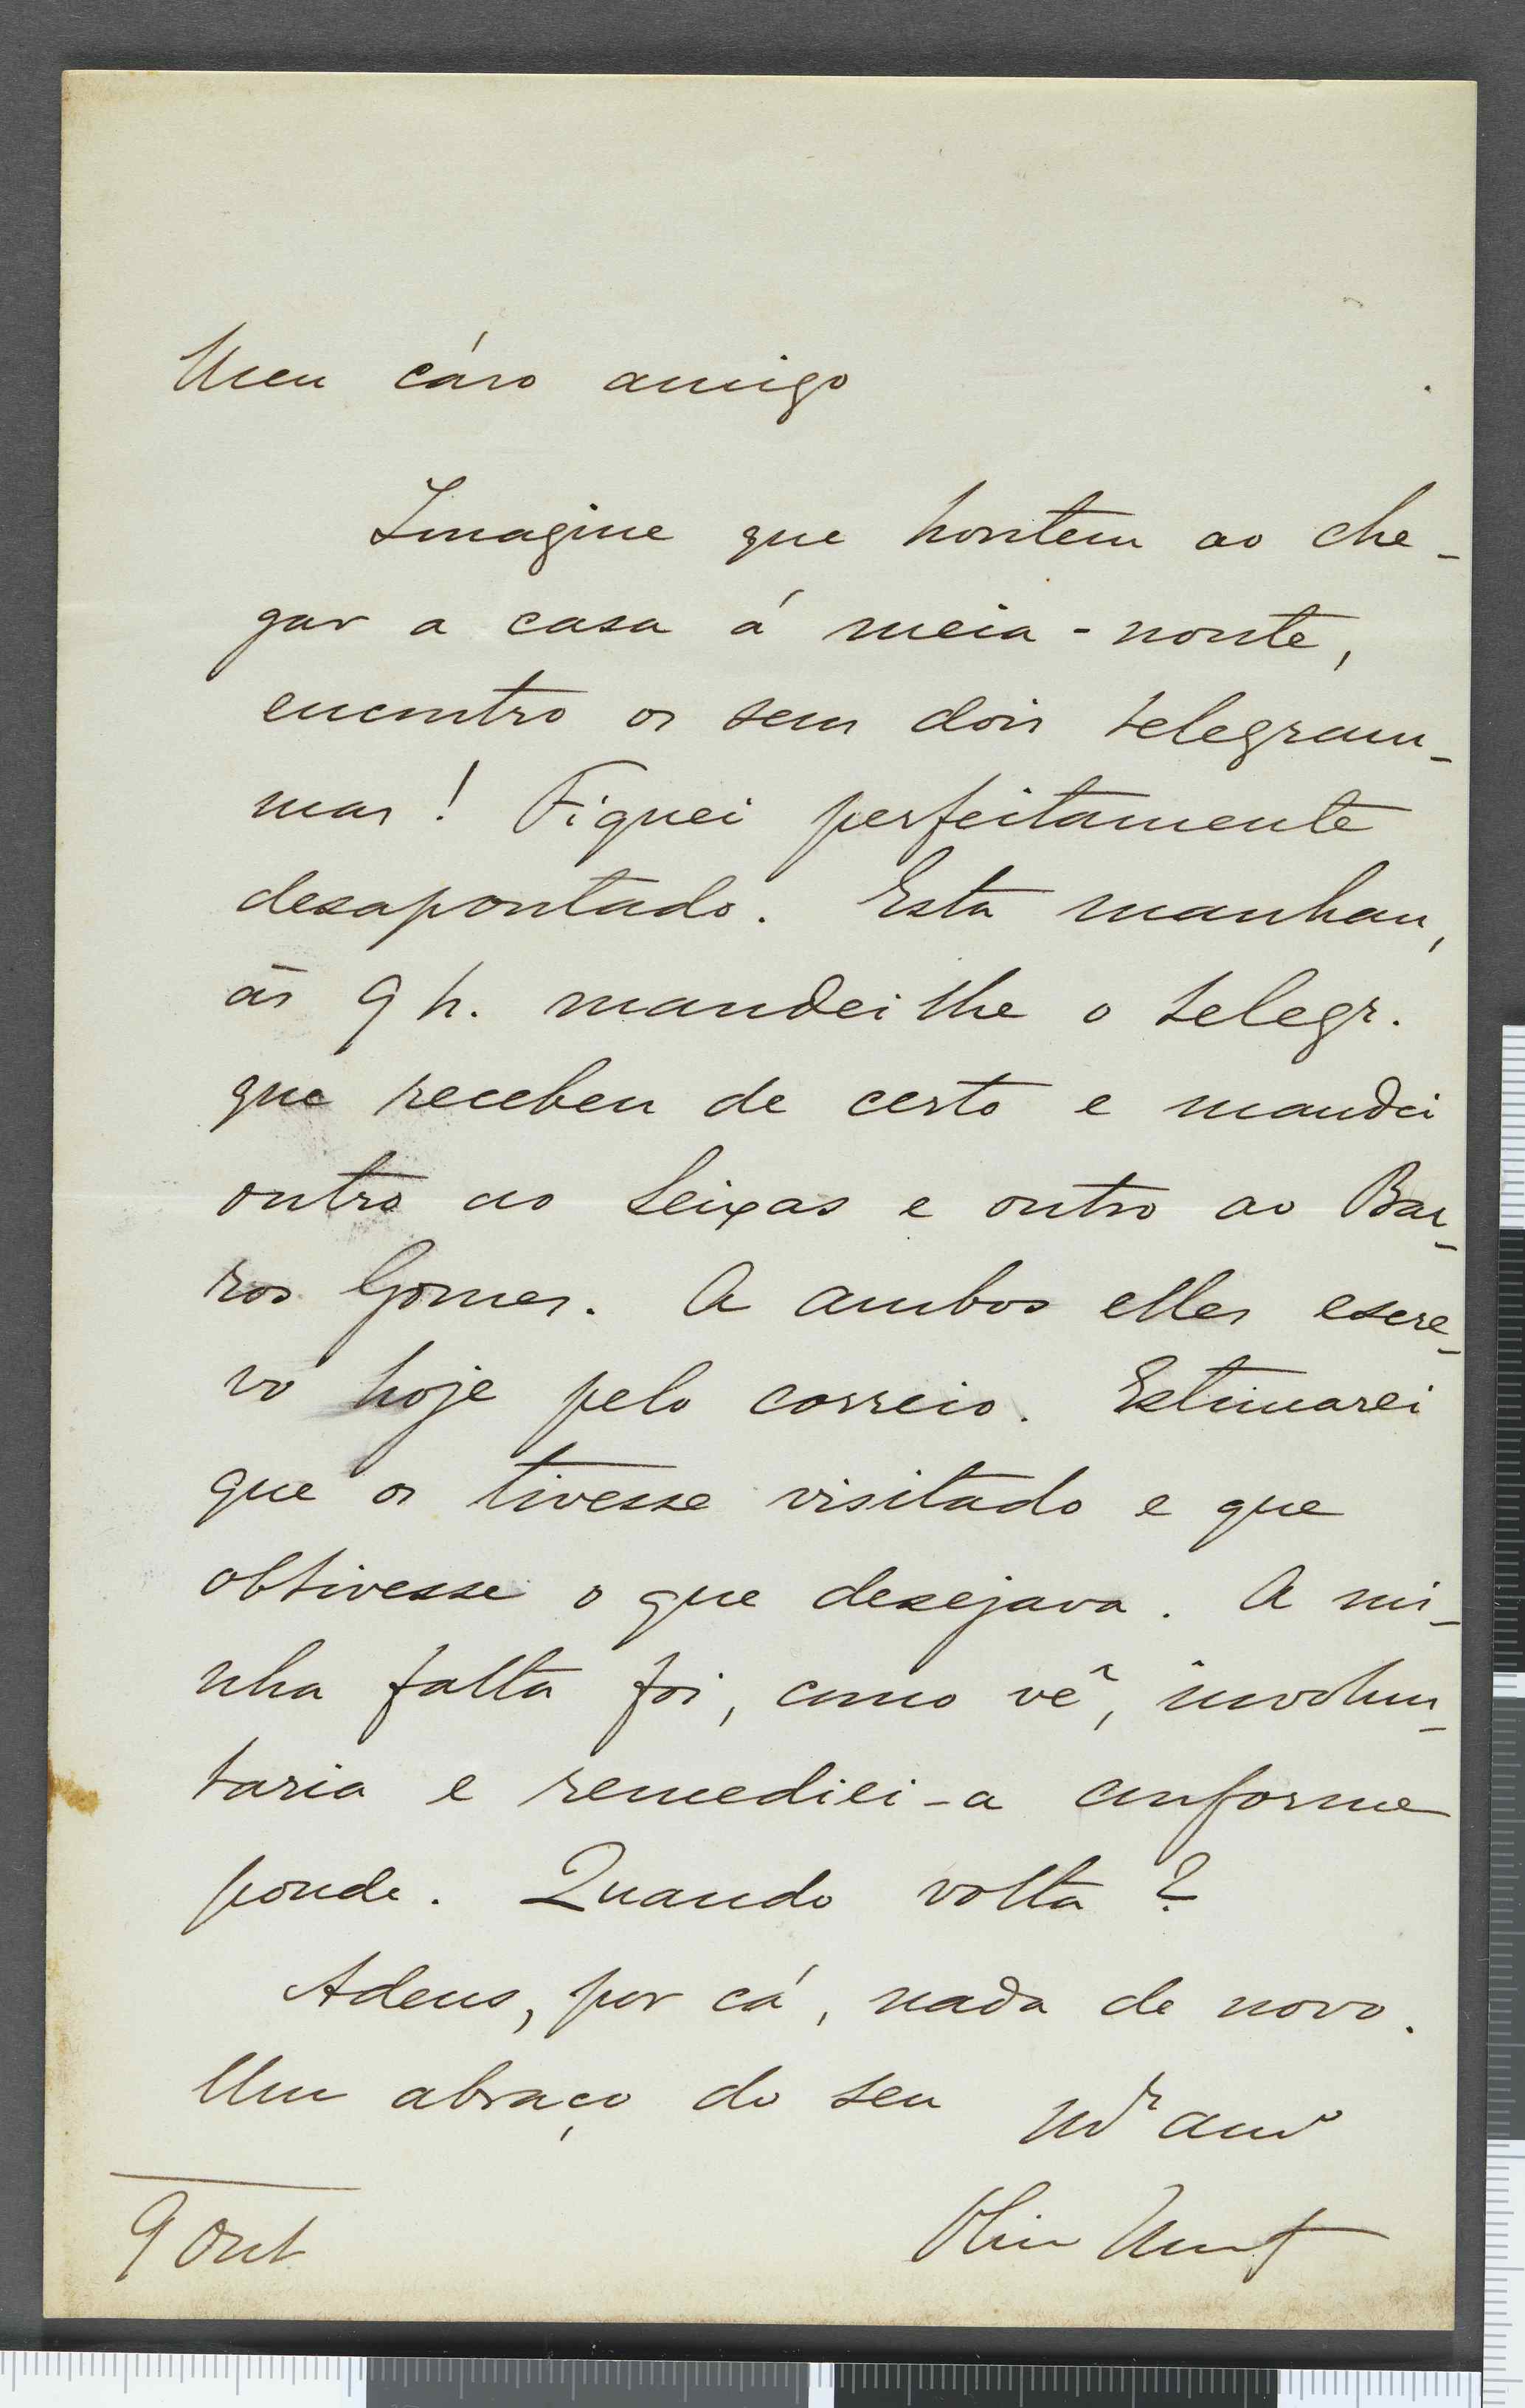 Meu cáro amigo
Imagine que hontem ao che-
gar a casa á meia-noute,
encontro os seus dois telegram-
mas! Fiquei perfeitamente
desapontado. Esta manhan,
ás 9 h. mandei lhe o telegr.
que recebeu de certo e mandei
outro ao Seixas e outro ao Bar-
ros Gomes. A ambos elles escre-
vo hoje pelo correio. Estimarei
que os tivesse visitado e que
obtivesse o que desejava. A mi-
nha falta foi, como vê, involun-
taria e remediei-a conforme
poude. Quando volta?
Adeus, por cá, nada de novo.
Um abraço do seu
m.r am.o
9 Out
Oliv Mart